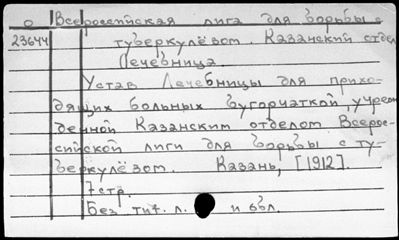 о Всероссийская лига для борьбы с
23644 туберкулёзом. Казанский отдел
Лечебница.
Устав Лечебницы для прихо-
дящих больных бугорчаткой, учреж-
денной Казанским отделом Всерос-
сийской лиги для борьбы с ту-
беркулёзом. Казань, [1912].
7 стр.
Без тит. л. и обл.